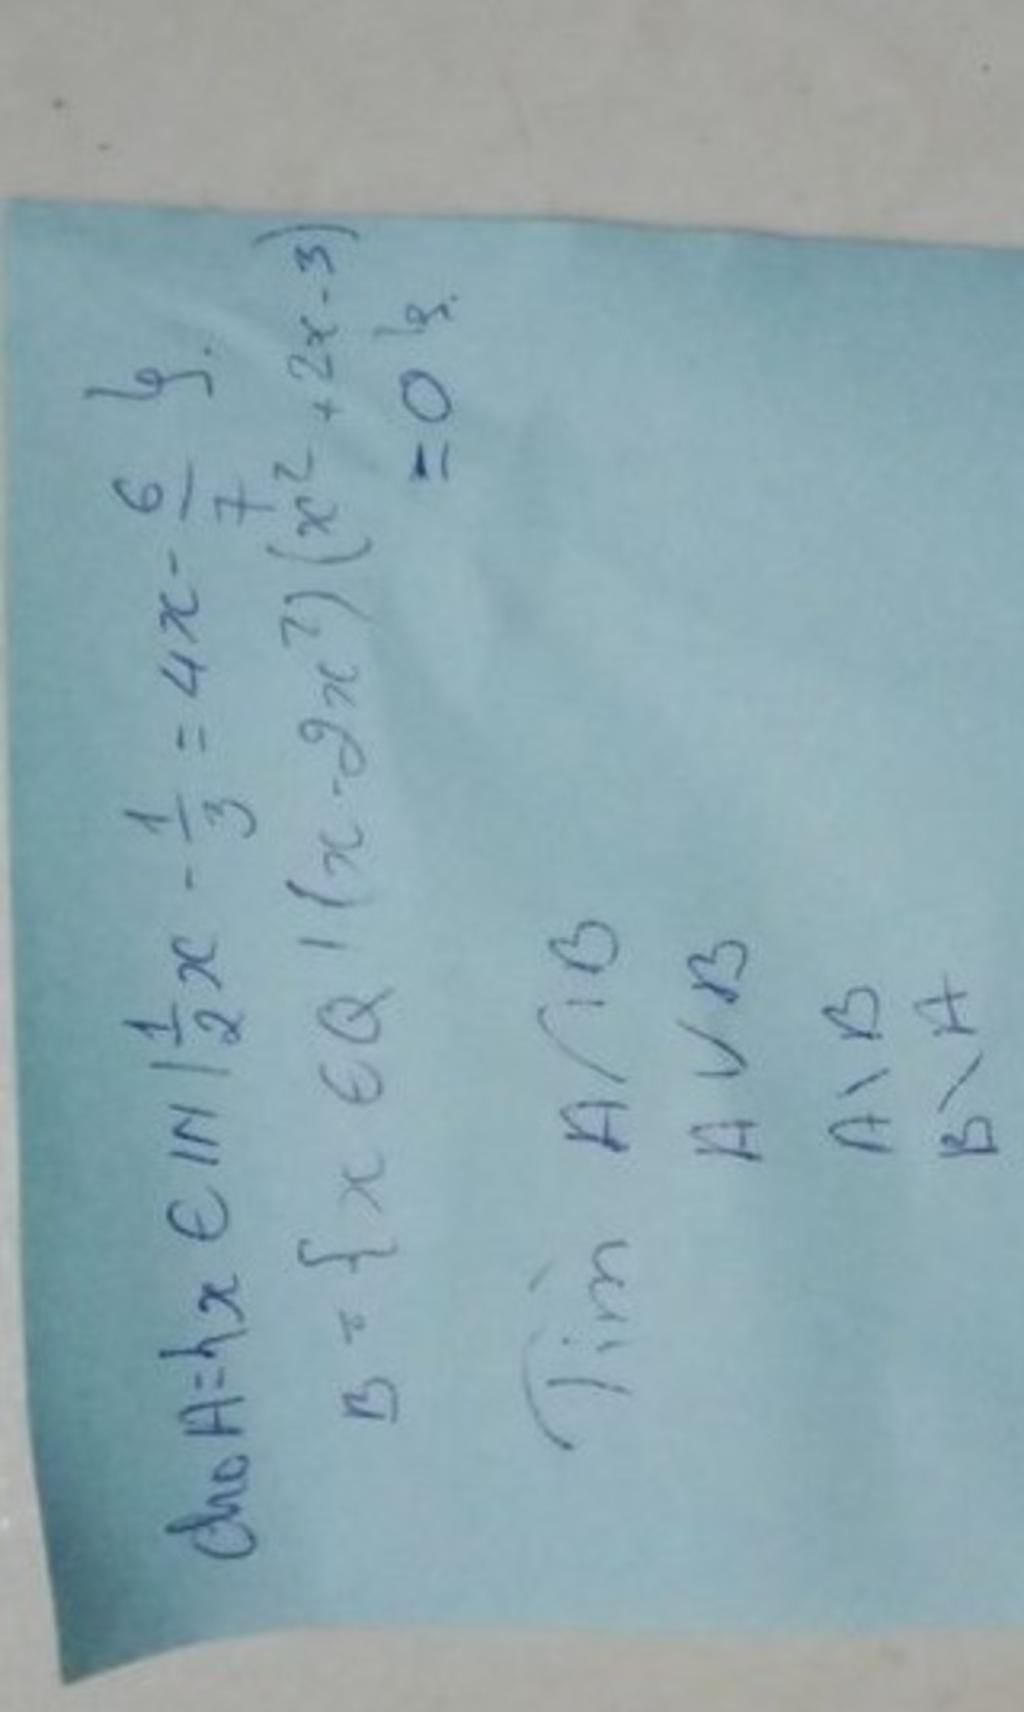 Cho A = {x ∈ IN | 1/2 x - 1/3 = 4x - 6/7 }.
B = { x ∈ Q | (x - 2x²)(x² + 2x - 3)
= 0 }.
Tìm A ∩ B
A ∪ B
A \ B
B \ A